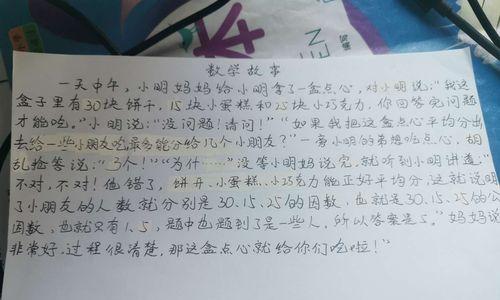 数学故事
一天中午，小明妈妈给小明拿了一盒点心，对小明说：“我这
盒子里有30块饼干，15块小蛋糕和25块小巧克力，你回答完问题
才能吃。”小明说：“没问题！请问！”“如果我把这盒点心平均分出
去给一些小朋友吃最多能分给几个小朋友？”一旁小明的弟想吃点心，胡
乱抢答说：“3个！”“为什……”没等小明妈说完，就听到小明讲道：“
不对，不对！他错了，饼干、小蛋糕、小巧克力能正好平均分，这就说明
了小朋友的人数就分别是30.15.25的因数，也就是30.15.25的公
因数，也就只有1.5，题中也题到了是一些人，所以答案是5。”妈妈说
非常好，过程很清楚，那这盒点心就给你们吃啦！”